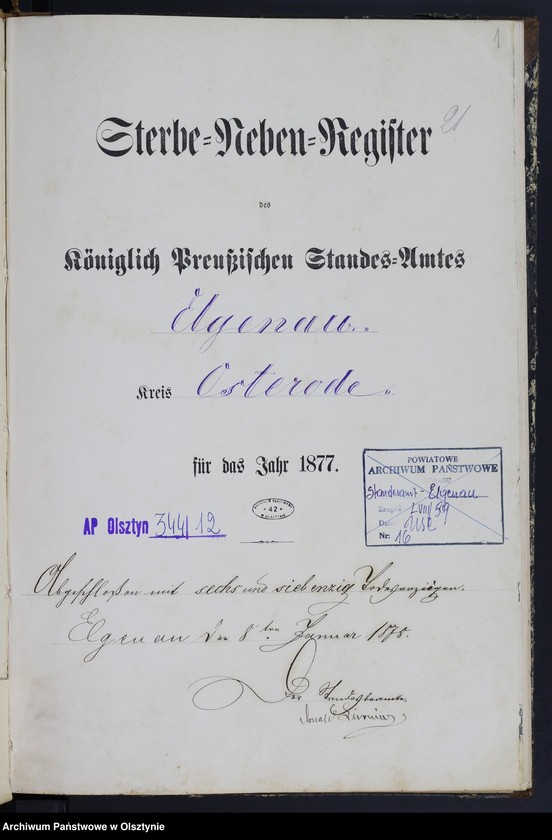 1
21
Sterbe=Neben=Register
des
Königlich Preußischen Standes=Amtes
Elgenau.
Kreis Osterode.
für das Jahr 1877.
POWIATOWE
ARCHIWUM PAŃSTWOWE
Standesamt-Elgenau
Zespół LVIII/59
Dz. USC
Nr: 16
42
AP Olsztyn 344/12
Abgeschloßen mit sechs und siebenzig
Elgenau den 8ten Januar 1878.
Der Standesbeamte.
Archiwum Państwowe w Olsztynie